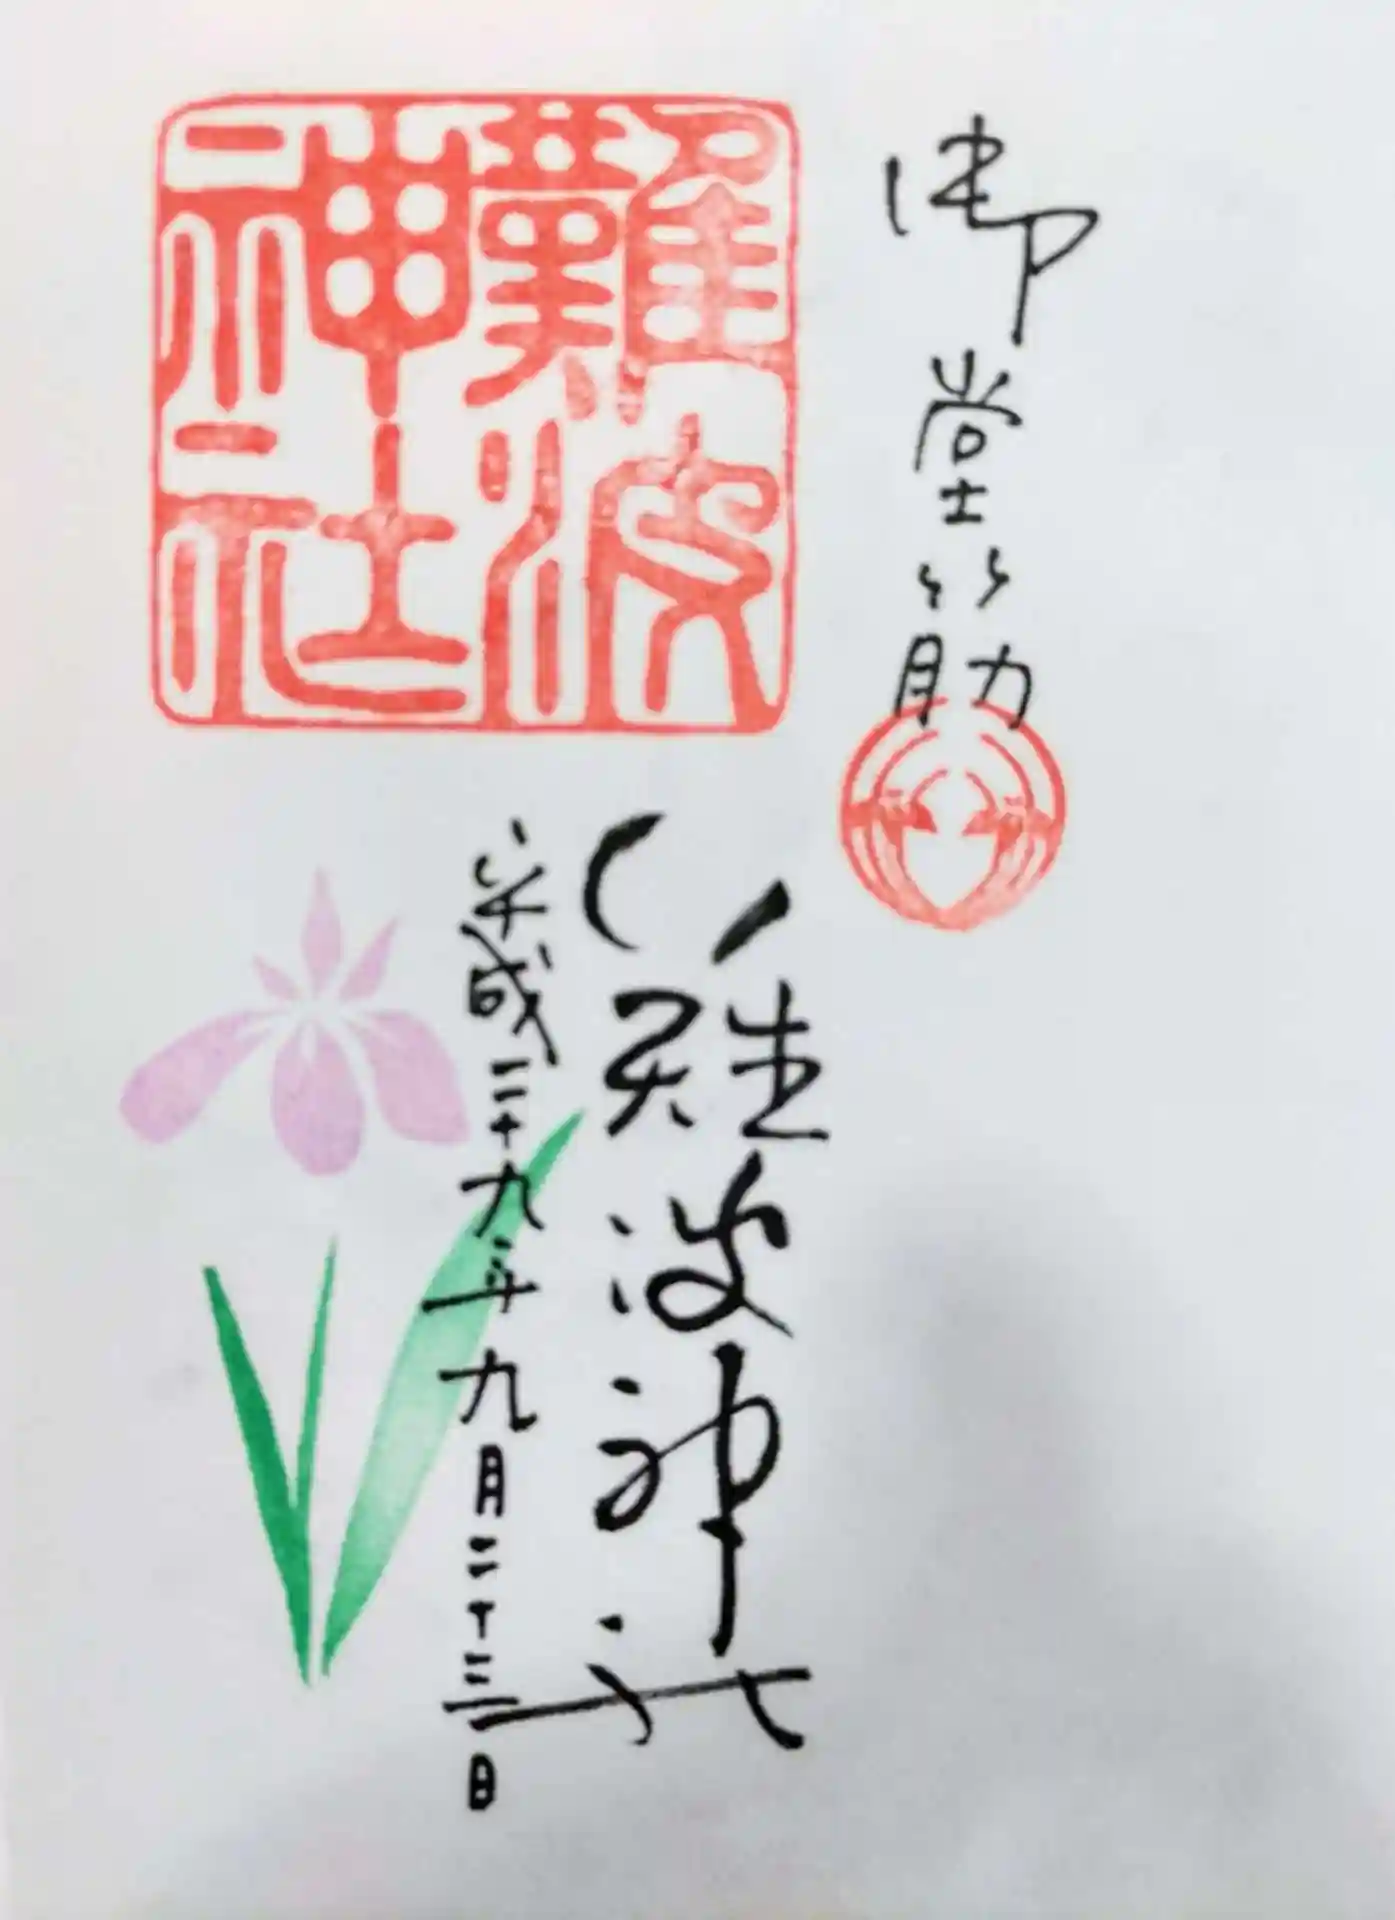 御堂筋
難波神社
難波神社
平成二十九年九月二十三日